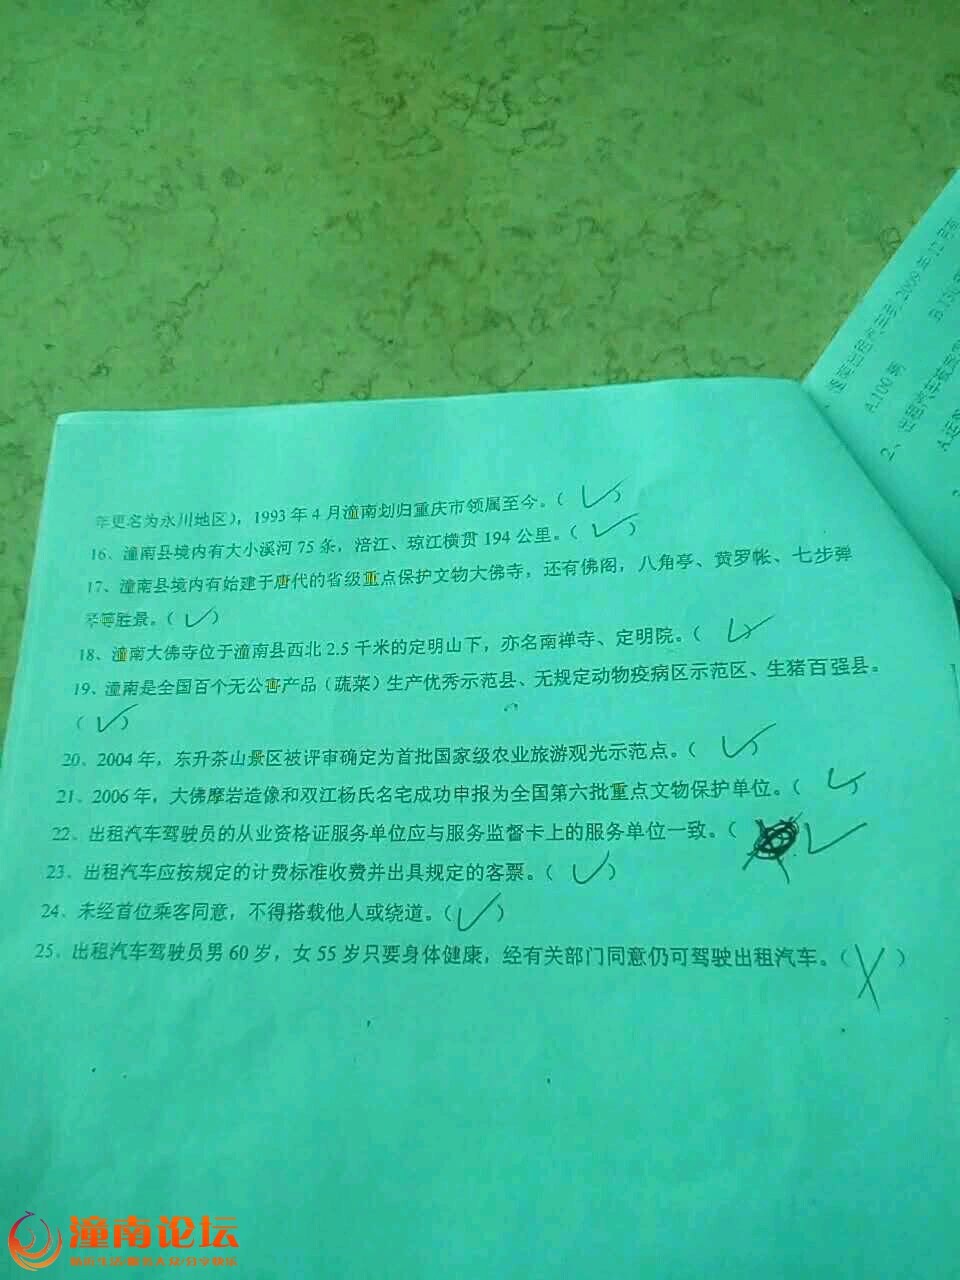 年更名为永川地区)，1993 年 4 月潼南划归重庆市领属至今。(√)
16、潼南县境内有大小溪河 75 条，涪江、琼江横贯 194 公里。(√)
17、潼南县境内有始建于唐代的省级重点保护文物大佛寺，还有佛阁，八角亭、黄罗帐、七步弹
琴等胜景。(√)
18、潼南大佛寺位于潼南县西北 2.5 千米的定明山下，亦名南禅寺、定明院。(√)
19、潼南是全国百个无公害产品（蔬菜）生产优秀示范县、无规定动物疫病区示范区、生猪百强县。
(√)
20、2004 年，东升茶山景区被评审确定为首批国家级农业旅游观光示范点。(√)
21、2006 年，大佛摩岩造像和双江杨氏名宅成功申报为全国第六批重点文物保护单位。(√)
22、出租汽车驾驶员的从业资格证服务单位应与服务监督卡上的服务单位一致。(√
23、出租汽车应按规定的计费标准收费并出具规定的客票。(√)
24、未经首位乘客同意，不得搭载他人或绕道。(√)
25、出租汽车驾驶员男 60 岁，女 55 岁只要身体健康，经有关部门同意仍可驾驶出租汽车。(X)
出租汽车 2009 年 12 月
A.100 辆
2、出租汽车
潼南论坛